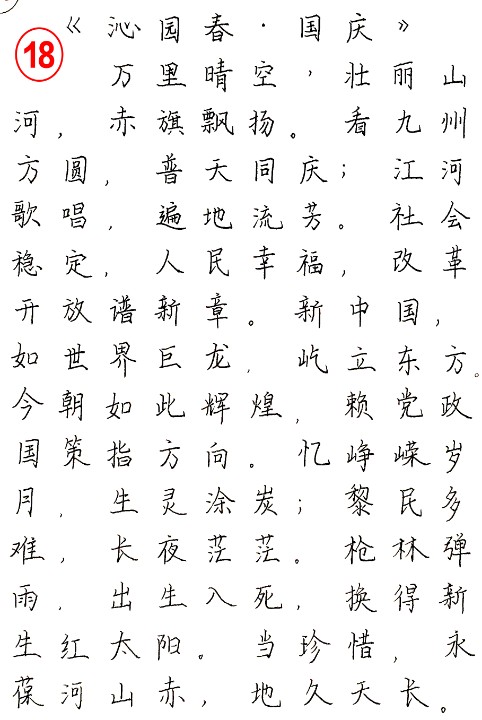 《沁园春·国庆》
18
万里晴空，壮丽山
河，赤旗飘扬。看九州
方圆，普天同庆；江河
歌唱，遍地流芳。社会
稳定，人民幸福，改革
开放谱新章。新中国，
如世界巨龙，屹立东方。
今朝如此辉煌，赖党政
国策指方向。忆峥嵘岁
月，生灵涂炭；黎民多
难，长夜茫茫。枪林弹
雨，出生入死，换得新
生红太阳。当珍惜，永
葆河山赤，地久天长。